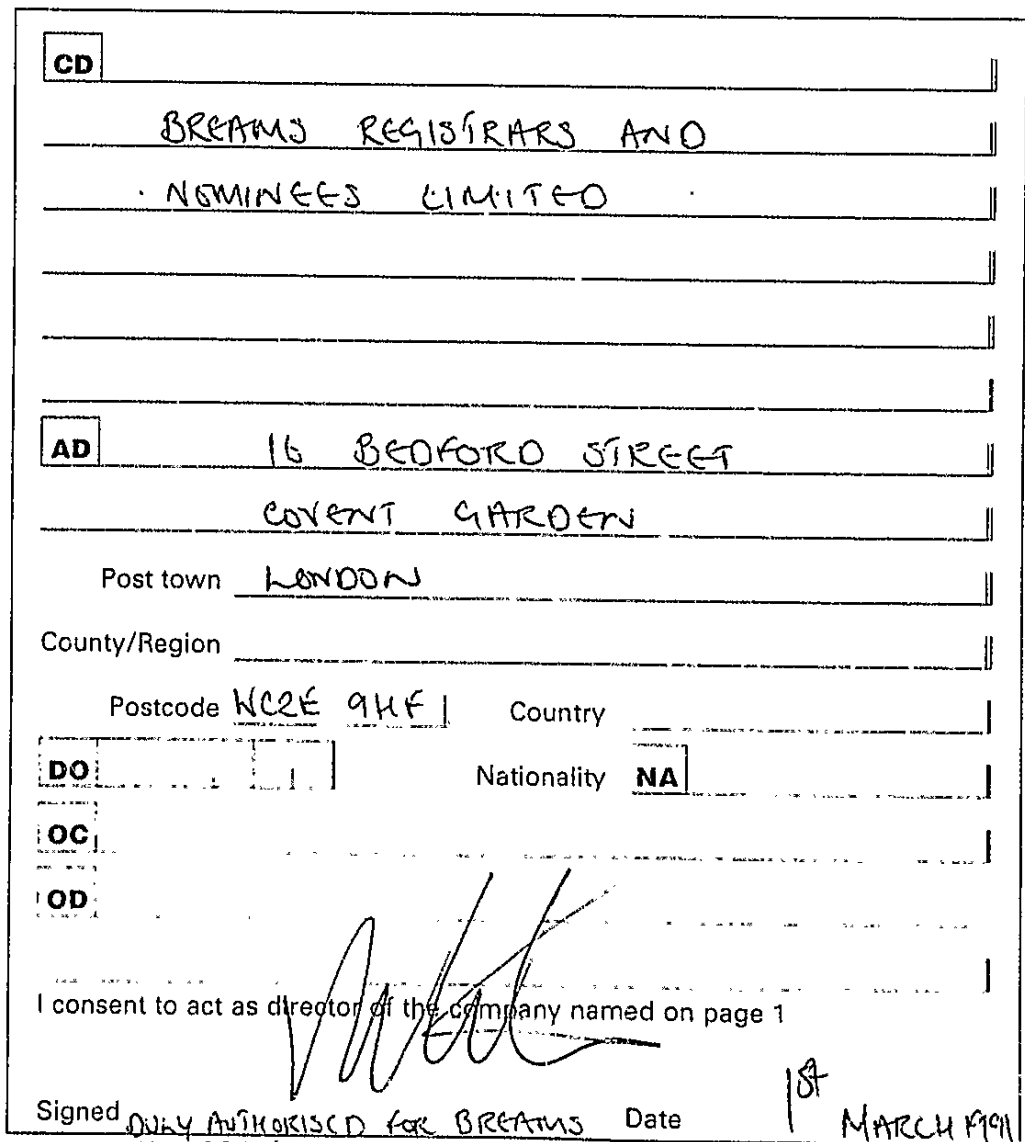 CD
BREAMS REGISTRARS AND
NOMINEES LIMITED
AD 16 BEDFORD STREET
COVENT GARDEN
Post town LONDON
County/Region
Postcode WC2E 9HF Country
DO Nationality NA
OC
OD
I consent to act as director of the company named on page 1
Signed DULY AUTHORISED FOR BREAMS Date 1st MARCH 1991